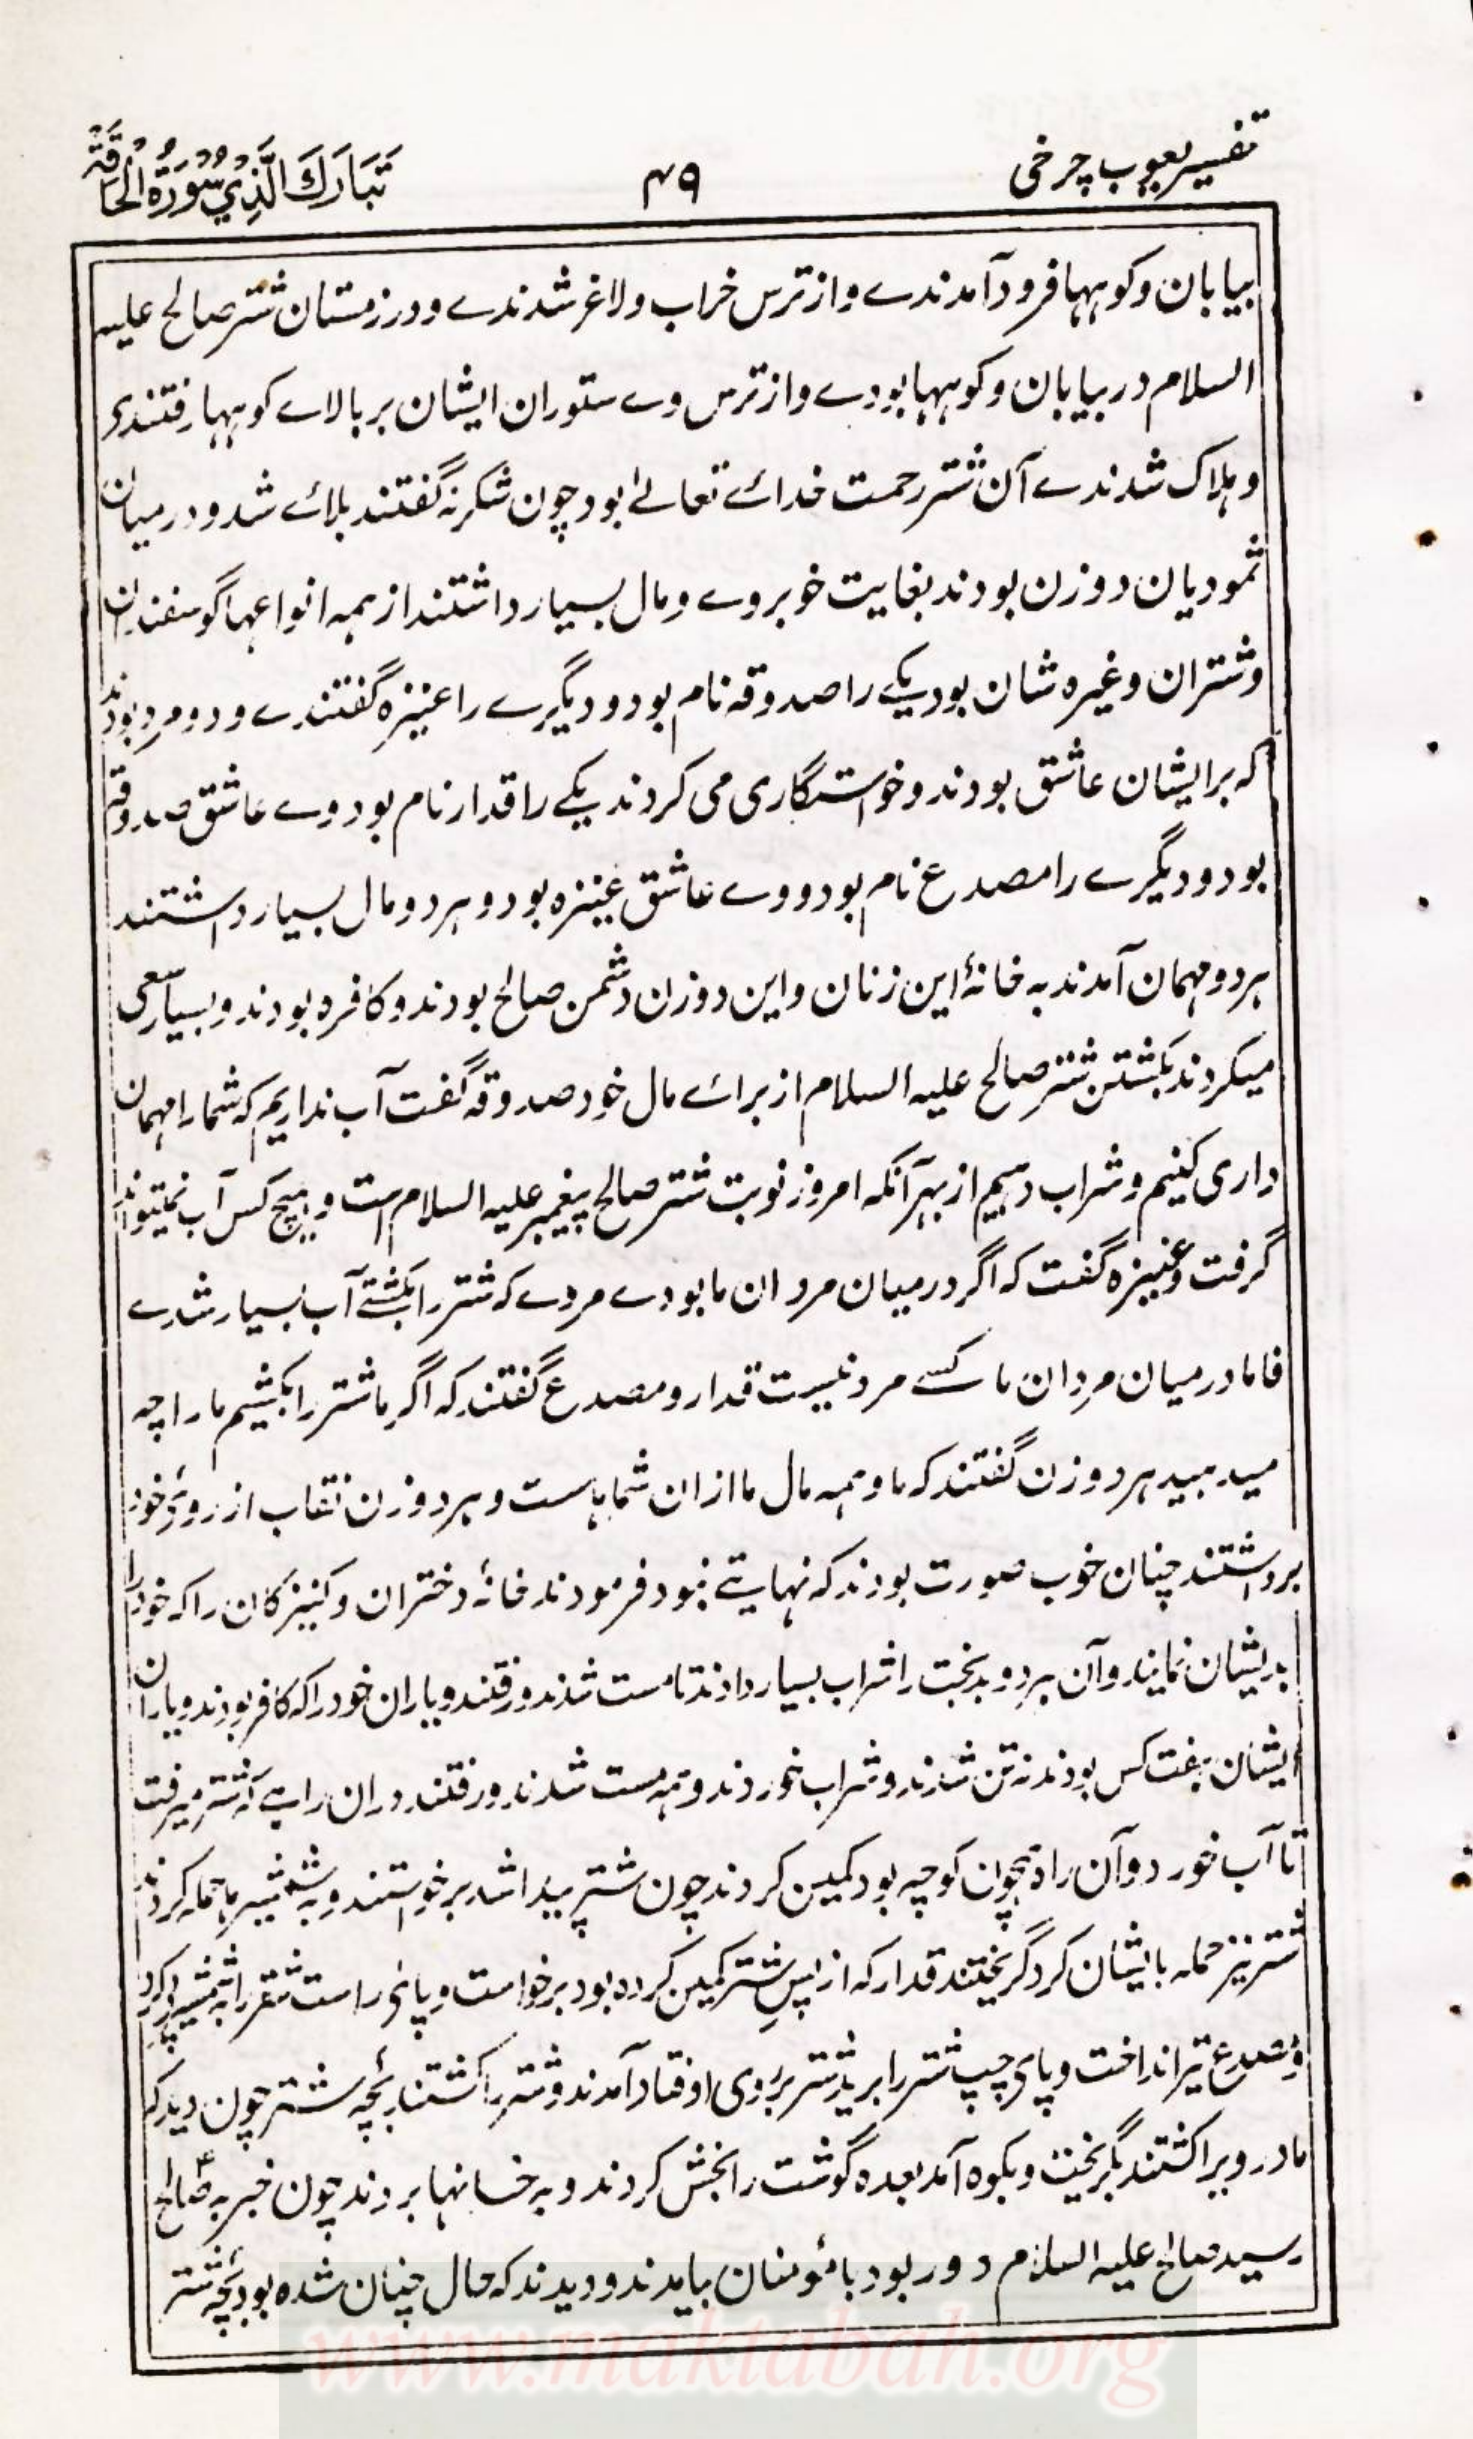 تفسیر یعقوب چرخی
۴۹
تَبَارَكَ الَّذِي سُوْرَةُ الْحَاقَّةِ
بیابان و کوہہا فرود آمدندے و از ترس خراب و لاغر شدندے و در زمستان شتر صالح علیہ
السلام در بیابان و کوہہا بودے و از ترس وے ستوران ایشان بر بالاے کوہہا رفتندے
و ہلاک شدندے آن شتر رحمت خدائے تعالےٰ بود چون شکر نہ گفتند بلائے شد و در میان
ثمودیان دو زن بودند بغایت خوبروے و مال بسیار داشتند از ہمہ انواعہا گوسفندان
و شتران و غیرہ شان بود یکے را صدوقہ نام بود و دیگرے را عنیزہ گفتندے و دو مرد بودند
کہ بر ایشان عاشق بودند و خواستگاری می کردند یکے را قدار نام بود وے عاشق صدوقہ
بود و دیگرے را مصدع نام بود و وے عاشق عنیزہ بود و ہر دو مال بسیار داشتند
ہر دو مہمان آمدند بہ خانۂ این زنان و این دو زن دشمن صالح بودند و کافرہ بودند و بسیار سعی
میکردند بکشتن شتر صالح علیہ السلام از برائے مال خود صدوقہ گفت آب نداریم کہ شما را مہمان
داری کنیم و شراب دہیم از بہر آنکہ امروز نوبت شتر صالح پیغمبر علیہ السلام است و ہیچ کس آب نمیتواند
گرفت و عنیزہ گفت کہ اگر در میان مردان ما بودے مردے کہ شتر را بکشتے آب بسیار شدے
فاما در میان مردان ما کسے مرد نیست قدار و مصدع گفتند کہ اگر ما شتر را بکشیم ما را چہ
میدہید ہر دو زن گفتند کہ ما و ہمہ مال ما ازان شماہاست و ہر دو زن نقاب از روئے خود
برداشتند چنان خوب صورت بودند کہ نہایتے نبود فرمودند خانۂ دختران و کنیزکان را کہ خود را
بدیشان نمایند و آن ہر دو بدبخت را شراب بسیار دادند تا مست شدند و رفتند و یاران خود را کہ کافر بودند و یاران
ایشان ہفت کس بودند نہ تن شدند و شراب خوردند و ہمہ مست شدند و رفتند دران راہے کہ شتر میرفت
تا آب خورد و آن راہ ہمچون کوچہ بود کمین کردند چون شتر پیدا شد برخواستند و بہ شمشیرہا حملہ کردند
شتر نیز حملہ بایشان کرد گریختند قدار کہ از پس شتر کمین کردہ بود برخواست و پائے راست شتر را بہ شمشیر
و مصدع تیر انداخت و پای چپ شتر را برید شتر بروی افتاد آمدند و شتر را کشتند بچۂ شتر چون دید کہ
مادر ویرا کشتند بگریخت و بکوہ آمد بعدہ گوشت را بخش کردند و بہ خانہا بردند چون خبر بہ صالح
رسید صالح علیہ السلام دور بود با مؤمنان بیامدند و دیدند کہ حال چنان شدہ بود بچۂ شتر
www.maktabah.org